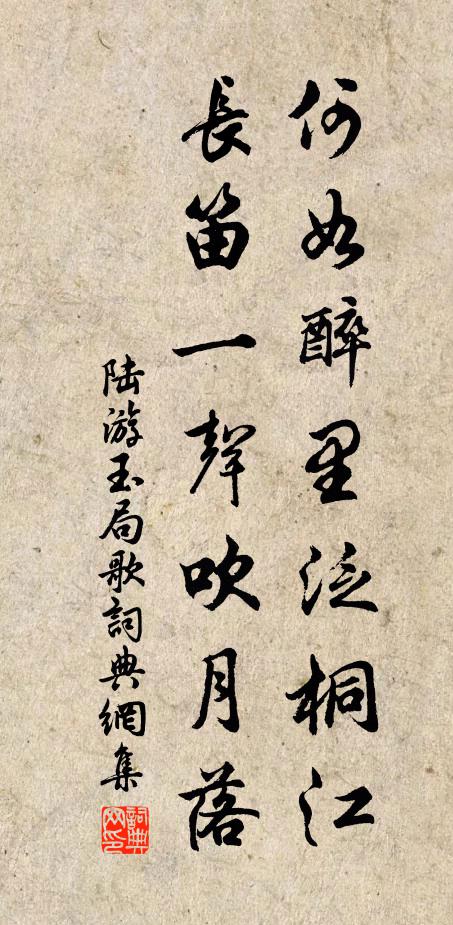 何如醉里泛桐江
長笛一聲吹月落
陆游玉局歌詞典網集
詞典网印